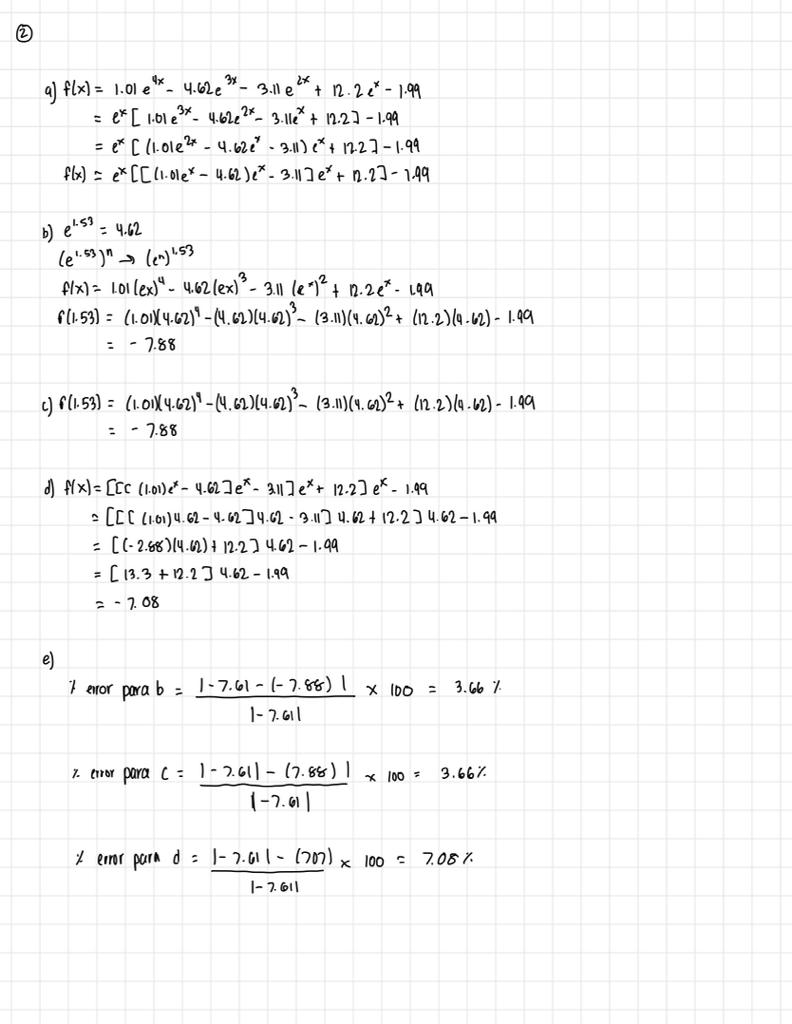 ②
a) f(x) = 1.01 e^4x - 4.62e^3x - 3.11 e^2x + 12.2 e^x - 1.99
= e^x [ 1.01 e^3x - 4.62e^2x - 3.11e^x + 12.2] - 1.99
= e^x [ (1.01e^2x - 4.62e^x - 3.11) e^x + 12.2] - 1.99
f(x) = e^x [[(1.01e^x - 4.62)e^x - 3.11] e^x + 12.2] - 1.99
b) e^1.53 = 4.62
(e^1.53)^n → (e^n)^1.53
f(x) = 1.01 (ex)^4 - 4.62 (ex)^3 - 3.11 (e^x)^2 + 12.2 e^x - 1.99
f(1.53) = (1.01)(4.62)^4 - (4.62)(4.62)^3 - (3.11)(4.62)^2 + (12.2)(4.62) - 1.99
= - 7.88
c) f(1.53) = (1.01)(4.62)^4 - (4.62)(4.62)^3 - (3.11)(4.62)^2 + (12.2)(4.62) - 1.99
= - 7.88
d) f(x) = [[[ (1.01)e^x - 4.62] e^x - 3.11] e^x + 12.2] e^x - 1.99
= [[[ (1.01) 4.62 - 4.62] 4.62 - 3.11] 4.62 + 12.2] 4.62 - 1.99
= [(-2.88)(4.62) + 12.2] 4.62 - 1.99
= [ 13.3 + 12.2 ] 4.62 - 1.99
= - 7.08
e)
% error para b = |-7.61 - (-7.88) | / |-7.61| × 100 = 3.66 %
% error para c = |-7.61| - (7.88) | / |-7.61| × 100 = 3.66%
% error para d = |-7.61| - (707) / |-7.61| × 100 = 7.08 %